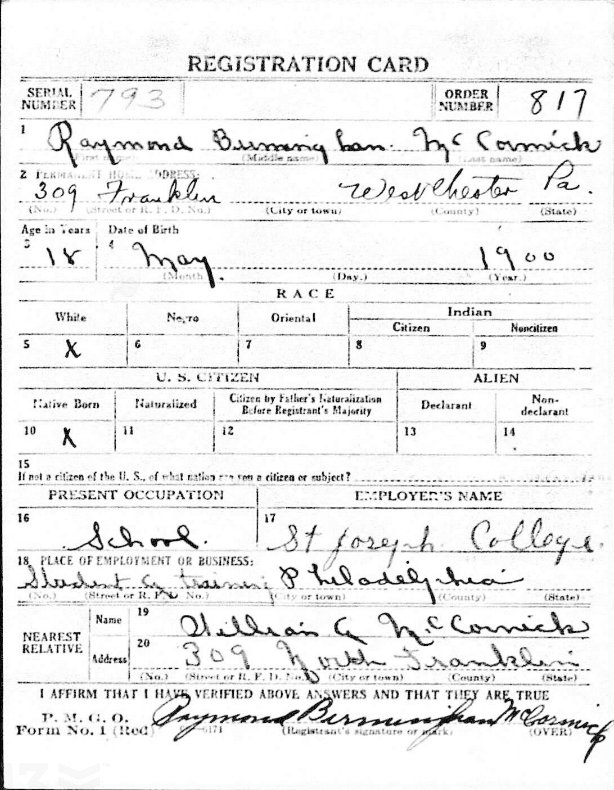 REGISTRATION CARD
SERIAL NUMBER 793 ORDER NUMBER 817
1 Raymond Birmingham McCormick
(First name) (Middle name) (Last name)
2 PERMANENT HOME ADDRESS:
309 Franklin West Chester Pa.
(No.) (Street or R. F. D. No.) (City or town) (County) (State)
Age in Years Date of Birth
3 18 4 May. 1900
(Month) (Day.) (Year.)
RACE
White Negro Oriental Indian
Citizen Noncitizen
5 X 6 7 8 9
U. S. CITIZEN ALIEN
Native Born Naturalized Citizen by Father's Naturalization Before Registrant's Majority Declarant Non-declarant
10 X 11 12 13 14
15
If not a citizen of the U. S., of what nation are you a citizen or subject?
PRESENT OCCUPATION EMPLOYER'S NAME
16 School. 17 St Joseph College.
18 PLACE OF EMPLOYMENT OR BUSINESS:
Student training Philadelphia
(No.) (Street or R. F. D. No.) (City or town) (County) (State)
NEAREST RELATIVE Name 19 William A McCormick
Address 20 309 North Franklin
(No.) (Street or R. F. D. No.) (City or town) (County) (State)
I AFFIRM THAT I HAVE VERIFIED ABOVE ANSWERS AND THAT THEY ARE TRUE
P. M. G. O.
Form No. 1 (Red) Raymond Birmingham McCormick
(Registrant's signature or mark) (OVER)